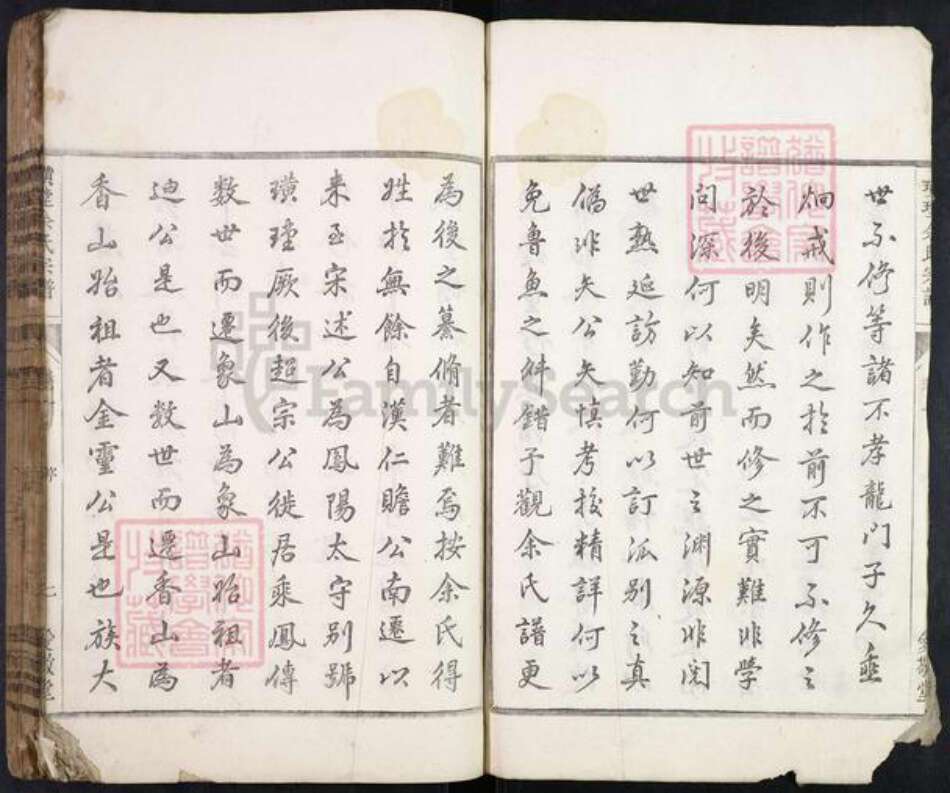 世不修等諸不孝龍門子久垂
炯戒則作之於前不可不修之
於後明矣然而修之實難非學
問深何以知前世之淵源非閱
世熟延訪勤何以訂派別之真
僞非矢公矢慎考授精詳何以
免魯魚之舛錯予觀余氏譜更
為後之纂脩者難焉按余氏得
姓於無餘自漢仁贍公南遷以
來至宋述公為鳳陽太守別號
璜瑾厥後超宗公徙居乘鳳傳
數世而遷象山為象山始祖者
迪公是也又數世而遷香山為
香山始祖者金靈公是也族大
余氏宗譜
序
七
敬堂
FamilySearch